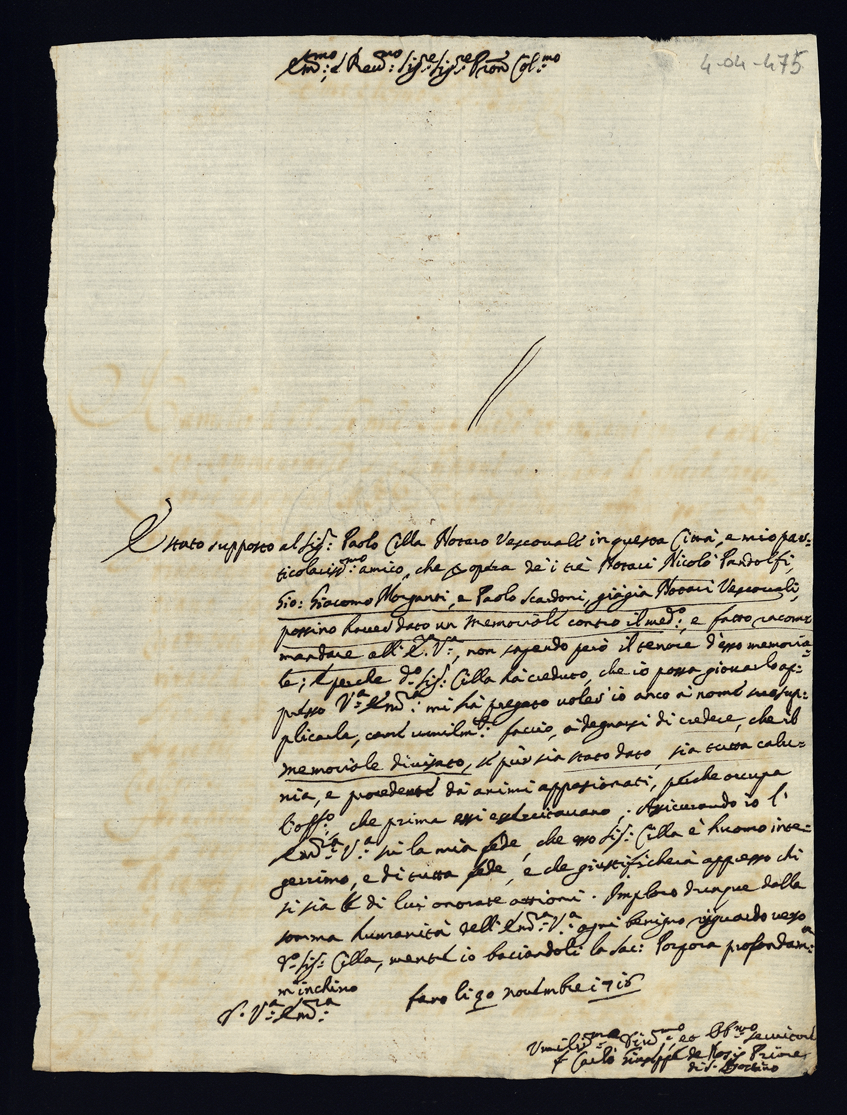 Em:mo e Reu:mo Sig:re Sig:re Pron Col:mo
4-04-475
E stato supposto al Sig:r Paolo Cilla Notaro Vescouale in questa Città, e mio par=
ticolariss:mo amico, che opera de i trè Notari Nicolò Pandolfi,
Gio: Giacomo Morganti, e Paolo Scardoni, già già Notari Vescouali,
possino hauer dato un Memoriale contro il med:o, e fatto racom=
mandare all' E:a V:a, non sapendo però il tenore d'esso memoria=
le; E perche d:o Sig:r Cilla hà creduto, che io possa giouarlo ap=
presso V:a Em:a mi hà pregato voler io anco à nome suo sup=
plicarla, come umilm:te faccio, à degnarsi di credere, che il
memoriale diuisato, se pur sia stato dato, sia tutta calu=
nia, e procedente da animi appasionati, perche occupa
l'off:o, che prima essi essercitauano; Assicurando io l'
Em:a V:a sù la mia fede, che esso Sig:r Cilla è huomo inte=
gerrimo, e di tutta fede, e che giustificherà appresso chi
si sia le di lui onorate attioni. Imploro dunque dalla
somma humanità dell' Em:a V:a ogni benigno riguardo verso
d:o Sig:r Cilla, mentre io baciandoli la Sac: Porpora profondam:
m'inchino
D. V:a Em:a
fano li 20 nouembre 1716
Umiliss:mo Diu:mo et Obb:mo seruitore
f Carlo Giuseppe de Rossi Priore
di S. Agostino